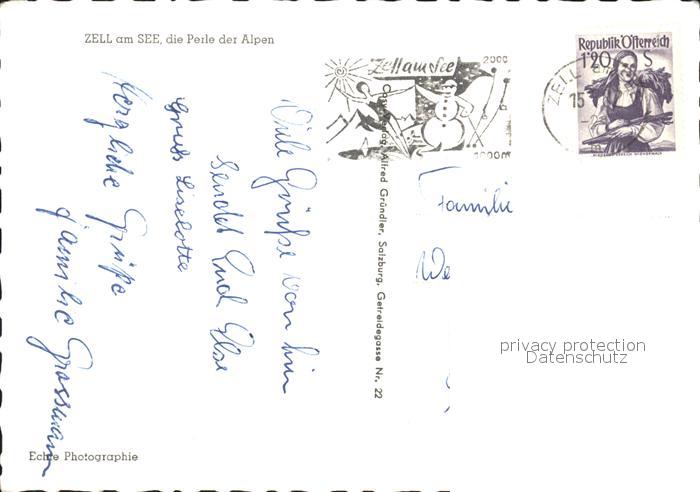 ZELL am SEE, die Perle der Alpen
Viele Grüße von hier
sendet Euch Else
Gruß Liselotte
Herzliche Grüße
Familie Grossmann
Echte Photographie
Cosy-Verlag, Alfred Gründler, Salzburg, Getreidegasse Nr. 22
Zell am See
2000
1000m
ZELL
15
Republik Österreich
1'20 S
Familie
We
privacy protection
Datenschutz